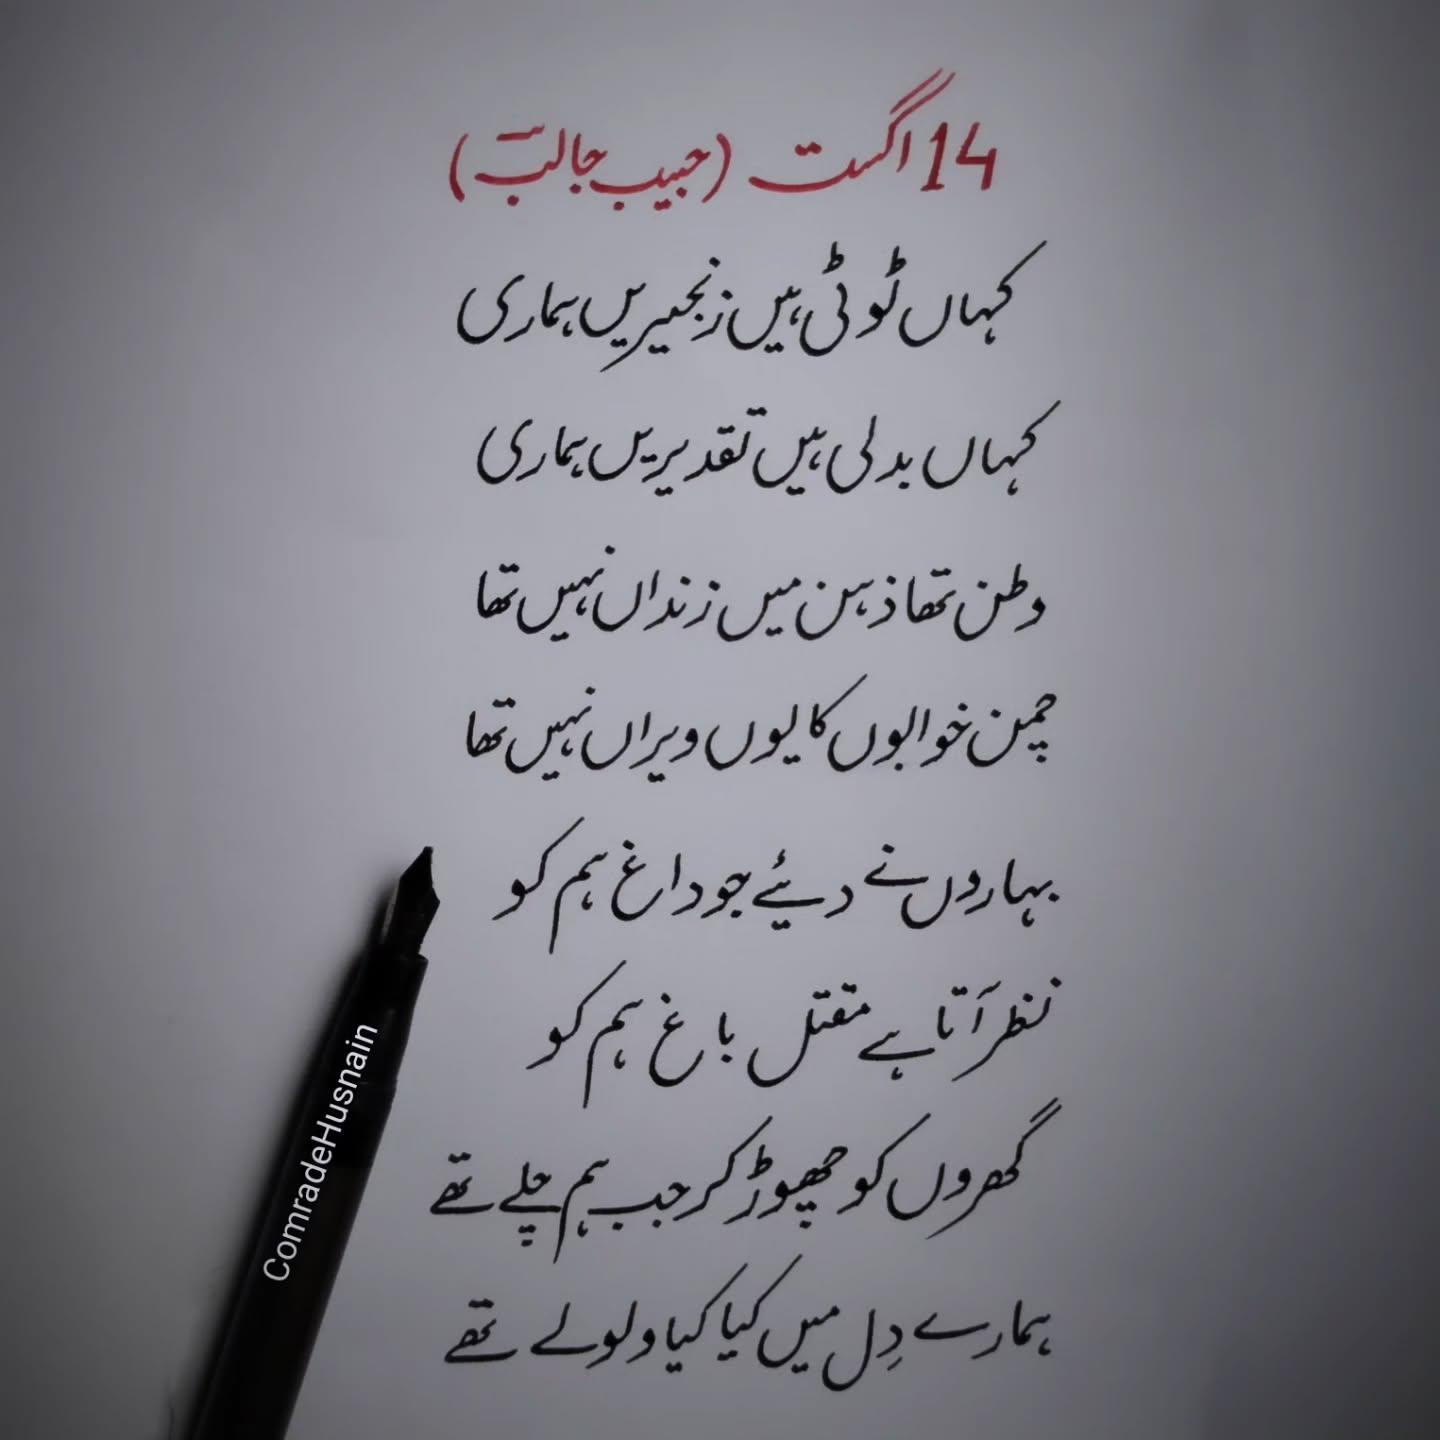 14 اگست (حبیب جالبؔ)
کہاں ٹوٹی ہیں زنجیریں ہماری
کہاں بدلی ہیں تقدیریں ہماری
وطن تھا ذہن میں زنداں نہیں تھا
چمن خوابوں کا یوں ویراں نہیں تھا
بہاروں نے دیئے جو داغ ہم کو
نظر آتا ہے مقتل باغ ہم کو
گھروں کو چھوڑ کر جب ہم چلے تھے
ہمارے دِل میں کیا کیا ولولے تھے
ComradeHusnain